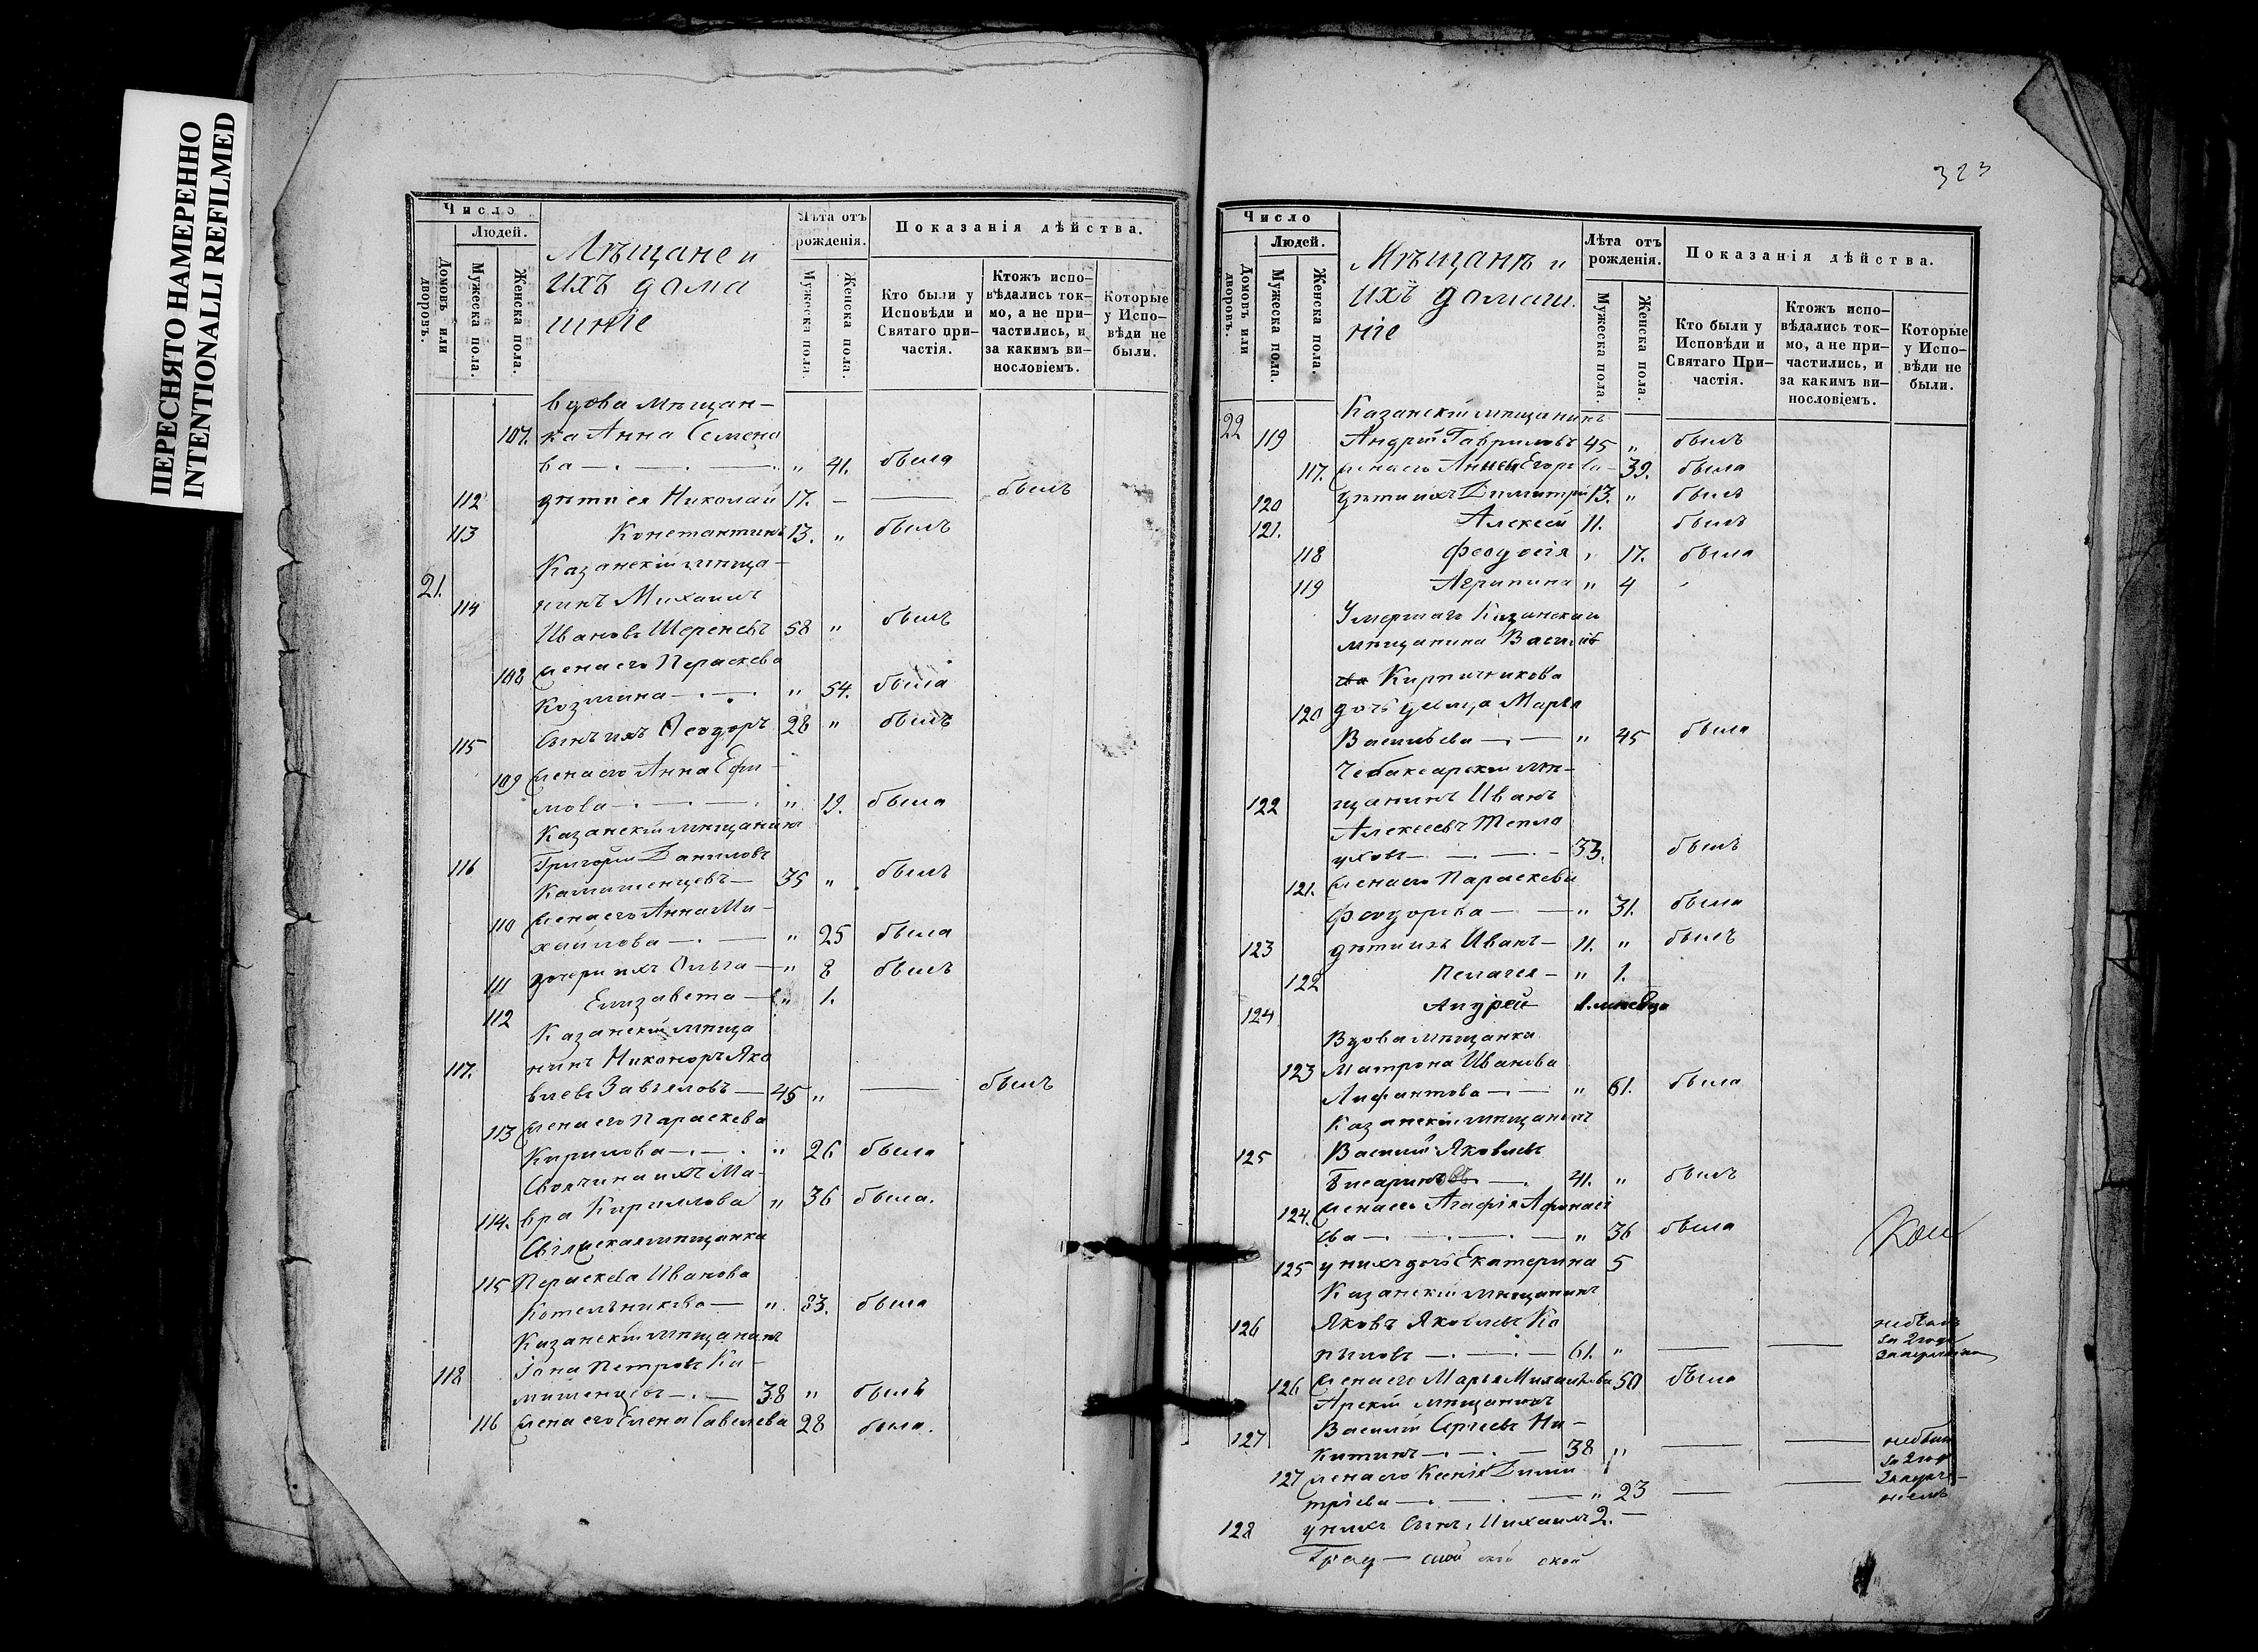 ПЕРЕСНЯТО НАМЕРЕННО
INTENTIONALLI REFILMED
Число
Людей.
Домовъ или дворовъ.
Мужеска пола.
Женска пола.
Мѣщане и
ихъ дома
шніе
Лѣта отъ
рожденія.
Мужеска пола.
Женска пола.
Показанія дѣйства.
Кто были у
Исповѣди и
Святаго при-
частія.
Ктожъ испо-
вѣдались ток-
мо, а не при-
частились, и
за какимъ ви-
нословіемъ.
Которые
у Испо-
вѣди не
были.
вдова мѣщан-
107. ка Анна Семено
ва — " 41. была
112 дѣти ея Николай 17. — былъ
113 Константинъ 13. " былъ
Казанскій мѣща-
21. 114 нинъ Михаилъ
Ивановъ Шереневъ 58 " былъ
108 жена его Параскева
Козмина — " 54. была
115 Сынъ ихъ Ѳеодоръ 28 " былъ
109 жена его Анна Ефи-
мова — " 19. была
Казанскій мѣщанинъ
116 Григорій Даниловъ
Камышенцевъ — 35 " былъ
110 жена его Анна Ми-
хайлова — " 25 была
111 дочери ихъ Ольга — " 8 былъ
112 Елизавета — " 1.
Казанскій мѣща
117. нинъ Никоноръ Яко
влевъ Завьяловъ — 45 " — былъ
113 жена его Параскева
Кирилова — " 26 была
Своячина ихъ Ма-
114. вра Кириллова " 36 была.
Свіяжская мѣщанка
115 Параскева Иванова
Котельникова — " 83. была
Казанскій мѣщанинъ
118 Іона Петровъ Ка-
мышенцевъ — 38 " былъ
116 жена его Елена Савелева 28 была.
323
Число
Людей.
Домовъ или дворовъ.
Мужеска пола.
Женска пола.
Мѣщанѣ и
ихъ домаш
ніе
Лѣта отъ
рожденія.
Мужеска пола.
Женска пола.
Показанія дѣйства.
Кто были у
Исповѣди и
Святаго При-
частія.
Ктожъ испо-
вѣдались ток-
мо, а не при-
частились, и
за какимъ ви-
нословіемъ.
Которые
у Испо-
вѣди не
были.
Казанскій мѣщанинъ
22 119 Андрей Гавриловъ 45 " былъ
117. жена его Анна Егорова — 39. была
120 дѣти ихъ Димитрій 13. " былъ
121. Алексѣй 11. былъ
118 Феодосія " 17. была
119 Агрипина " 4
Умершаго Казанскаго
мѣщанина Василь
Кирпичникова
120 дочь девица Марья
Васильева — " 45 была
Чебаксарскій мѣ-
122 щанинъ Иванъ
Алексеевъ Тепла
уховъ — 33. былъ
121. жена его Параскева
Феодорова — " 31. была
123 дѣти ихъ Иванъ — 11. " былъ
122 Пелагея — " 1.
124 Андрей 1. месяца
Вдова мѣщанка
123 Матрона Иванова
Лифантова — " 61. была
Казанскій мѣщанинъ
125 Василій Яковлевъ
— 41. " былъ
124. жена его Агафія Афонась
ева — " 36 была
125 у нихъ дочь Екатерина 5
Казанскій мѣщанинъ
126 Яковъ Яковлевъ Ко
пыловъ — 61. " — — небылъ
за 2 года
126 жена его Марья Михаилова 50 была
Арскій мѣщанинъ
127 Василій Сергеевъ Ни-
китинъ — 38 " — — небылъ
за 2 год
127 жена его Ксенія Дими
тріева — " 23 — —
128 у нихъ Сынъ Михаилъ 2. —